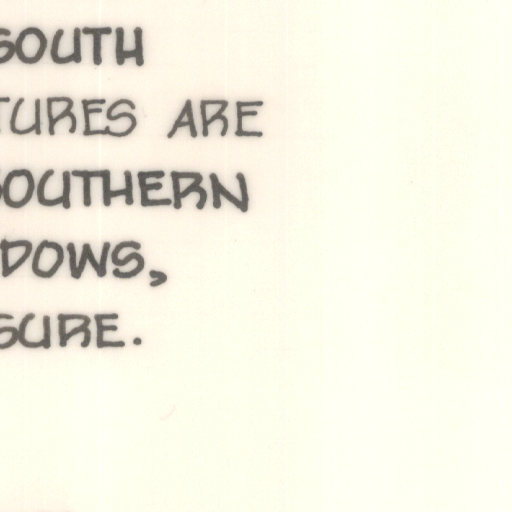 SOUTH
TURES ARE
SOUTHERN
DOWS,
SURE.